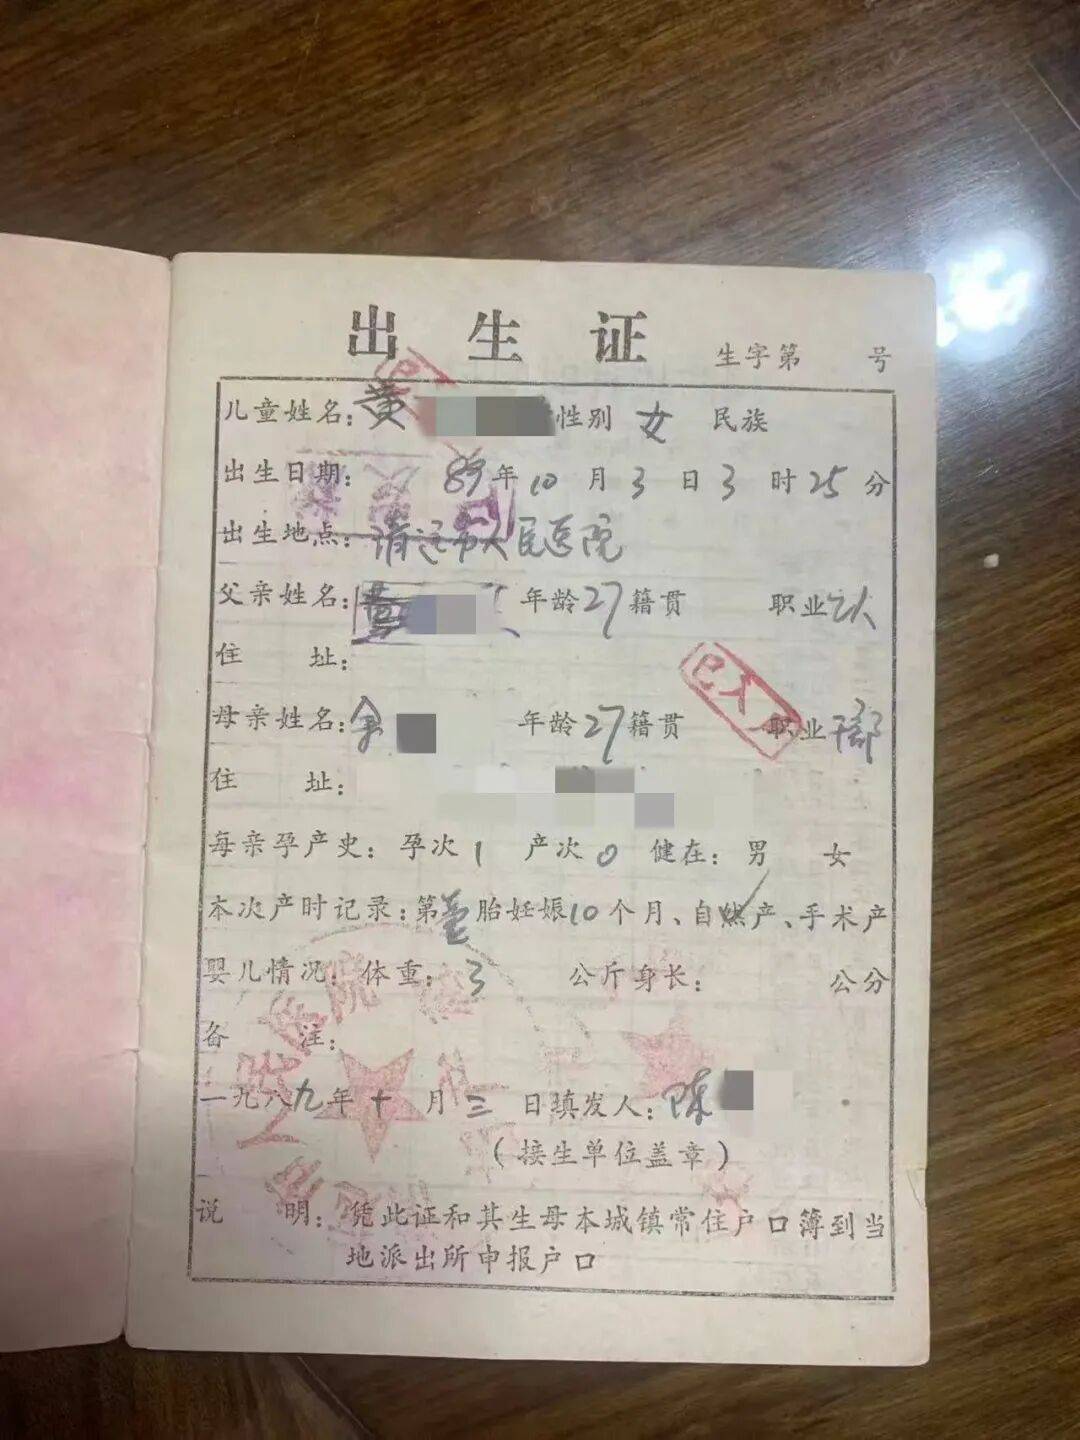 出生证 生字第 号
儿童姓名：黄 性别 女 民族
出生日期： 89年10月3日3时25分
出生地点：清远市人民医院
父亲姓名： 年龄27籍贯 职业
住 址：
母亲姓名：余 年龄27籍贯 职业干部
住 址：
每亲孕产史：孕次1 产次0 健在：男 女
本次产时记录：第壹胎妊娠10个月、自然产、手术产
婴儿情况：体重：3 公斤身长： 公分
备 注：
一九八九年十月三日填发人：陈
（接生单位盖章）
说 明：凭此证和其生母本城镇常住户口簿到当
地派出所申报户口
已入户